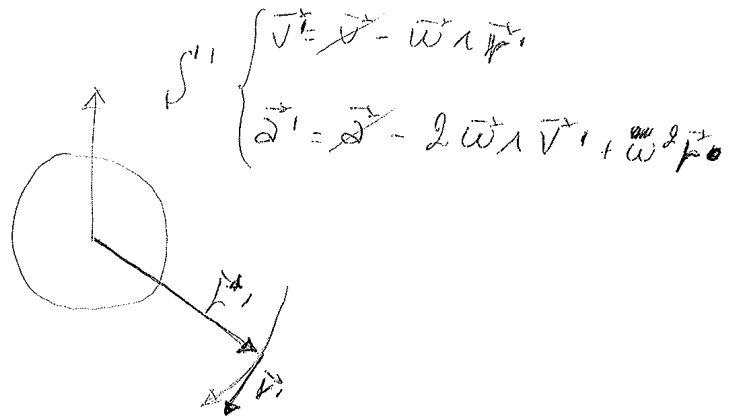 S'' { v⃗' = v⃗ - ω⃗ ∧ r⃗'
a⃗' = a⃗ - 2 ω⃗ ∧ v⃗' + ω² r⃗'
r⃗'
v⃗'